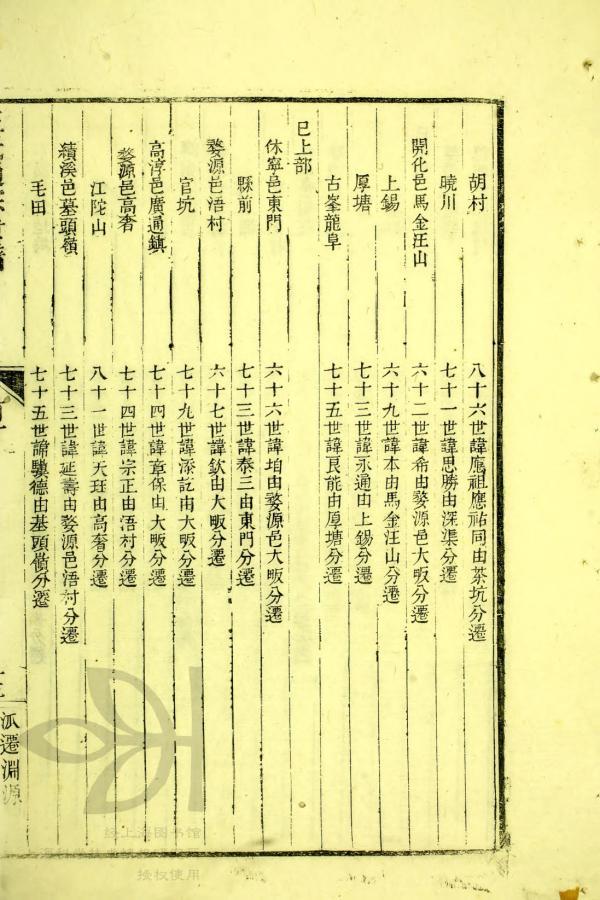 胡村 八十六世諱應祖應祐同由茶坑分遷
曉川 七十一世諱思勝由深渠分遷
開化邑馬金汪山 六十二世諱希由婺源邑大畈分遷
上錫 六十九世諱本由馬金汪山分遷
厚塘 七十三世諱永通由上錫分遷
古峯龍阜 七十五世諱良能由厚塘分遷
已上部
休寧邑東門 六十六世諱垍由婺源邑大畈分遷
縣前 七十三世諱泰三由東門分遷
婺源邑浯村 六十七世諱欽由大畈分遷
官坑 七十九世諱添記由大畈分遷
高淳邑廣通鎮 七十四世諱章保由大畈分遷
婺源邑高奢 七十四世諱宗正由浯村分遷
江陀山 八十一世諱天玨由高奢分遷
績溪邑墓頭嶺 七十三世諱延壽由婺源邑浯村分遷
毛田 七十五世諱驥德由墓頭嶺分遷
派遷淵源
上海图书馆
授权使用